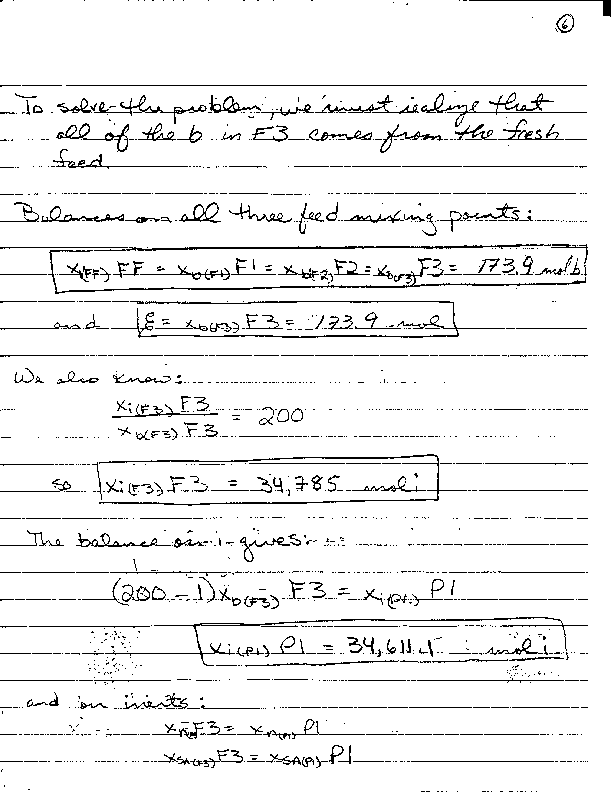 6
To solve the problem, we must realize that
all of the b in F3 comes from the fresh
feed.
Balances on all three feed mixing points:
x(FF) FF = x_b(F1) F1 = x_b(F2) F2 = x_b(F3) F3 = 173.9 mol b
and ξ = x_b(F3) F3 = 173.9 mol
We also know:
x_i(F3) F3 / x_b(F3) F3 = 200
so x_i(F3) F3 = 34,785 mol i
The balance on i gives:
(200 - 1) x_b(F3) F3 = x_i(P1) P1
x_i(P1) P1 = 34,611.1 mol i
and on inerts:
F3 = x_n(P1) P1
x_SA(F3) F3 = x_SA(P1) P1